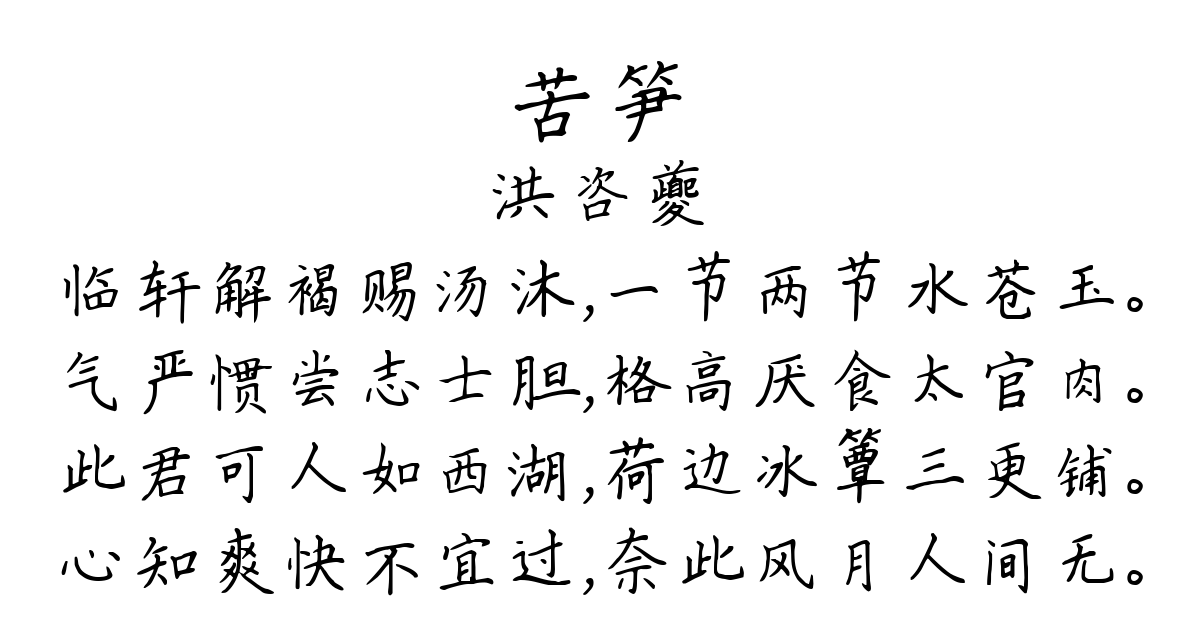 苦笋
洪咨夔
临轩解褐赐汤沐,一节两节水苍玉。
气严惯尝志士胆,格高厌食太官肉。
此君可人如西湖,荷边冰簟三更铺。
心知爽快不宜过,奈此风月人间无。